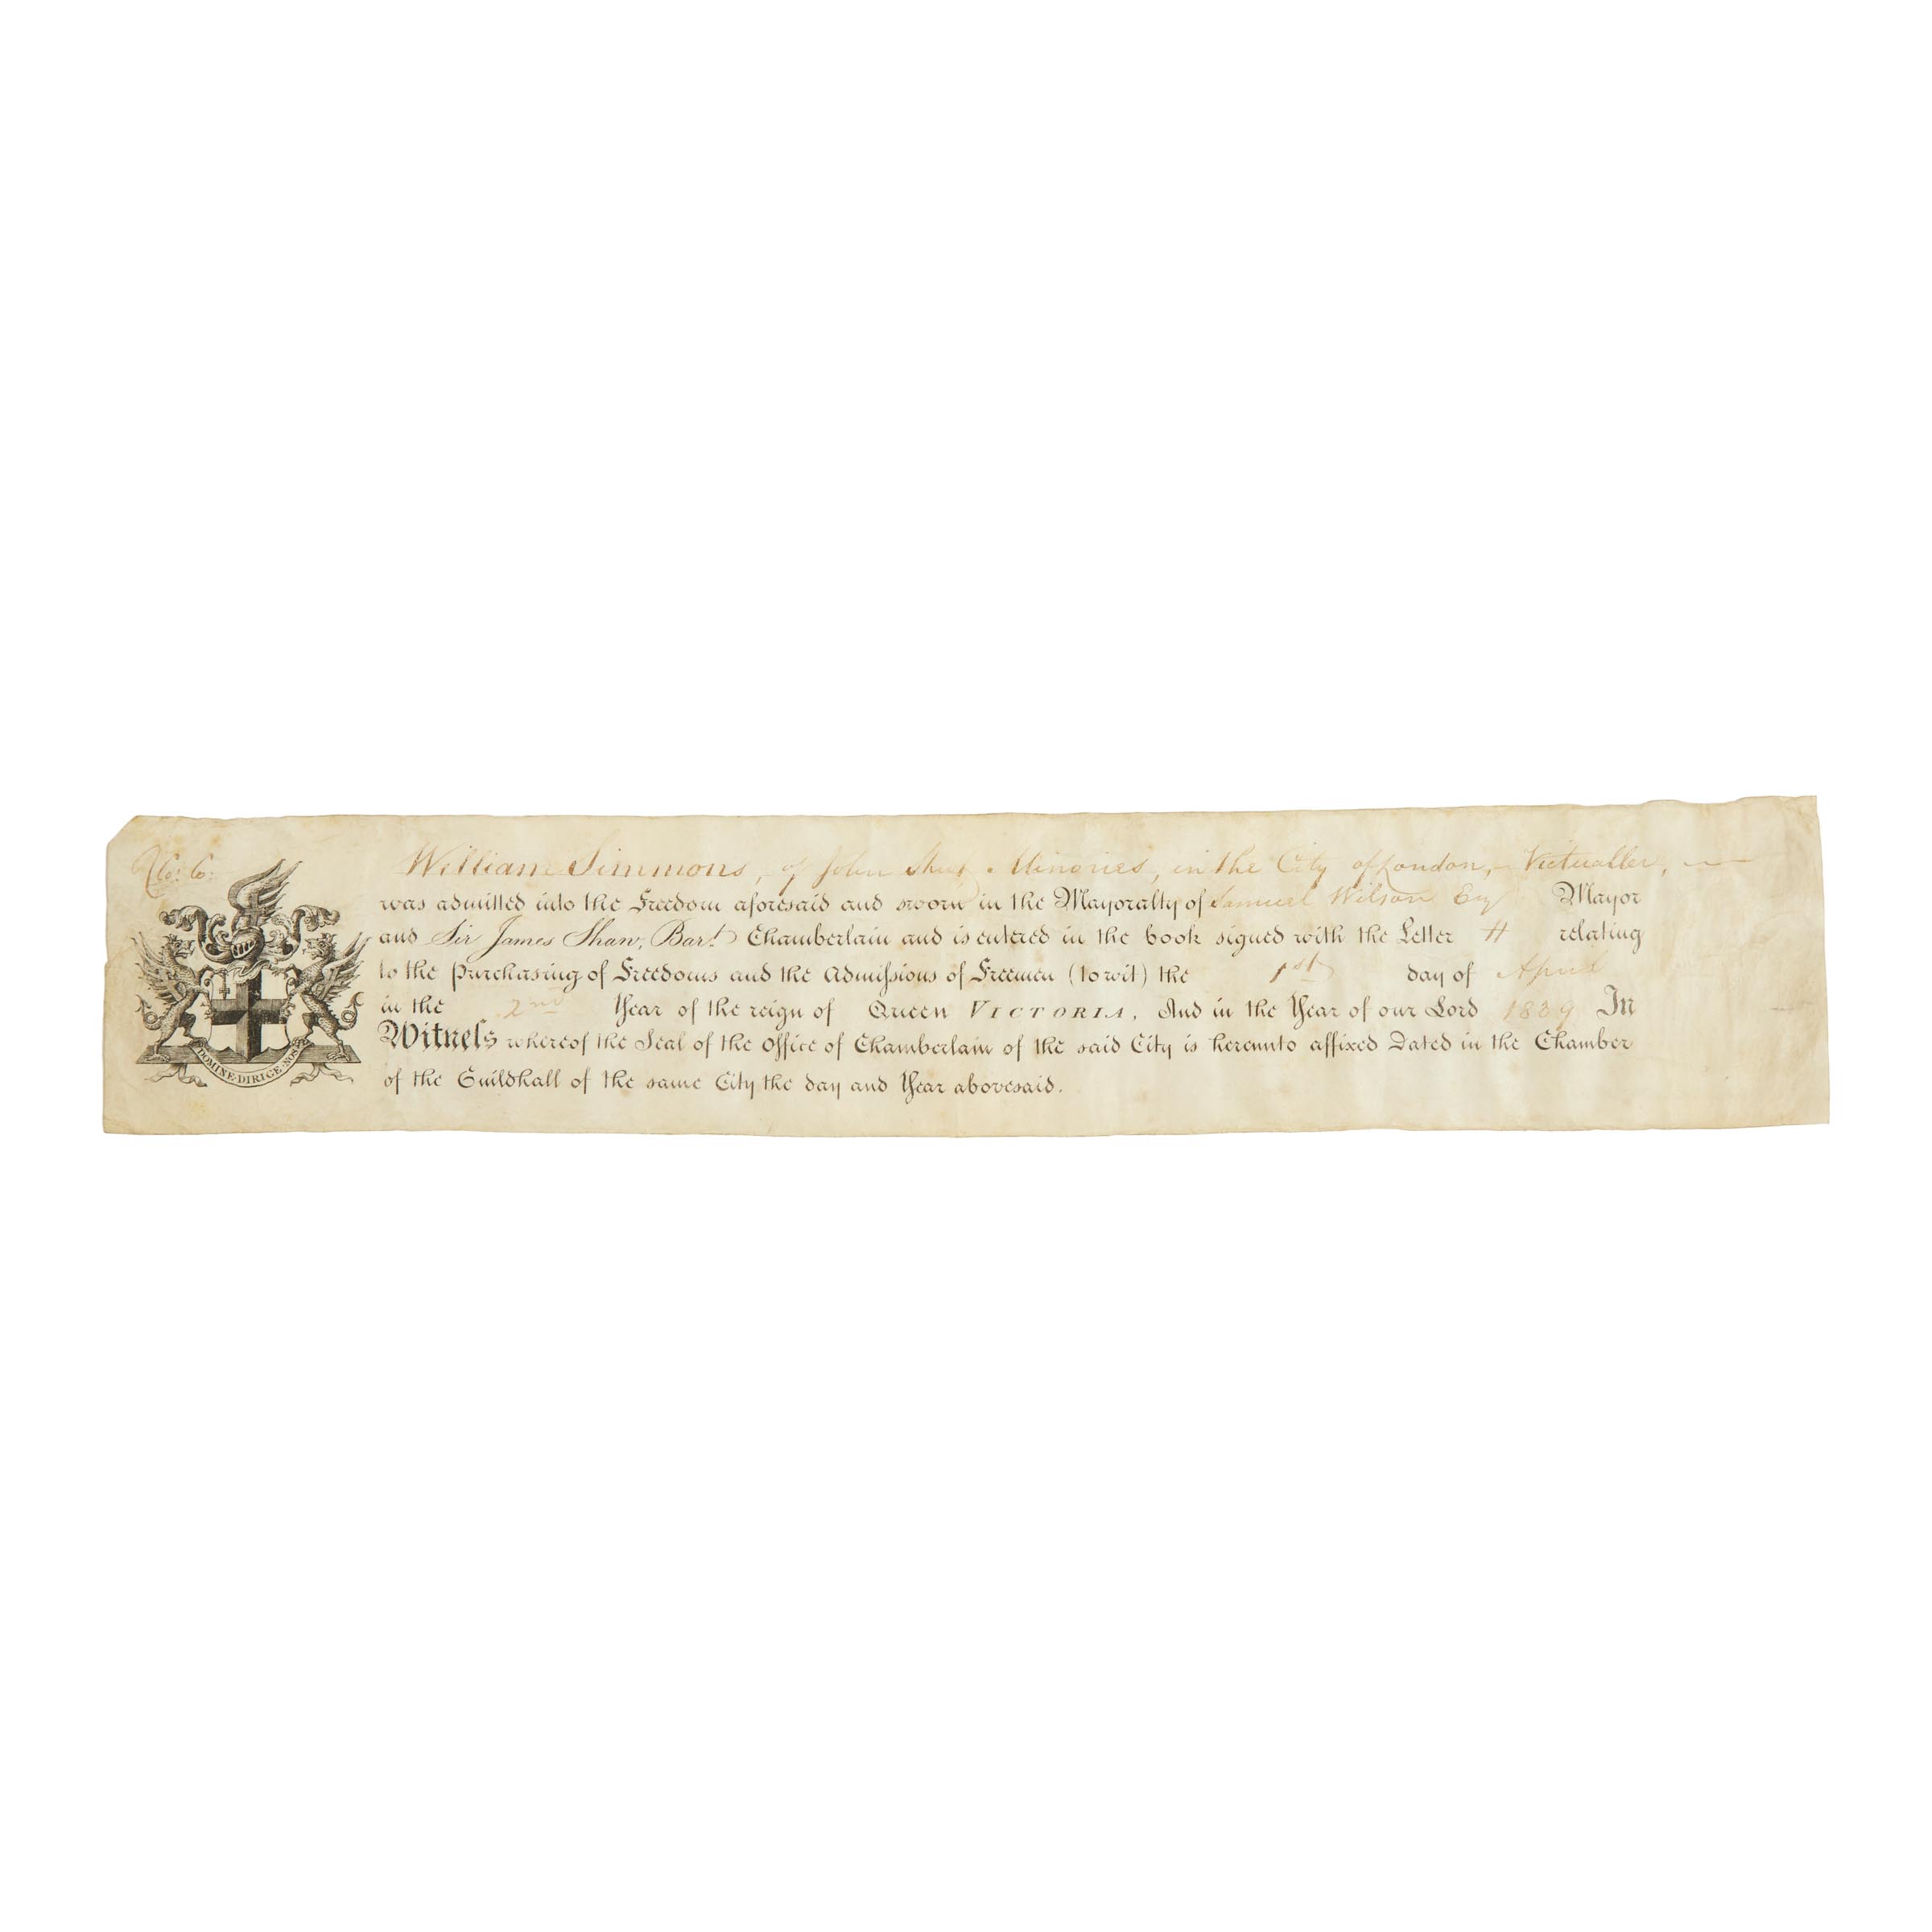 Co: Co:
William Simmons, of John Street Minories, in the City of London, Victualler,
was admitted into the Freedom aforesaid and sworn in the Mayoralty of Samuel Wilson Esq Mayor
and Sir James Shaw, Bart. Chamberlain and is entered in the book signed with the Letter H relating
to the purchasing of Freedoms and the Admiſsions of Freemen (to wit) the 1st day of April
in the 2nd Year of the reign of Queen VICTORIA, And in the Year of our Lord 1839 In
Witneſs whereof the Seal of the Office of Chamberlain of the said City is hereunto affixed Dated in the Chamber
of the Guildhall of the same City the day and Year abovesaid.
DOMINE·DIRIGE·NOS